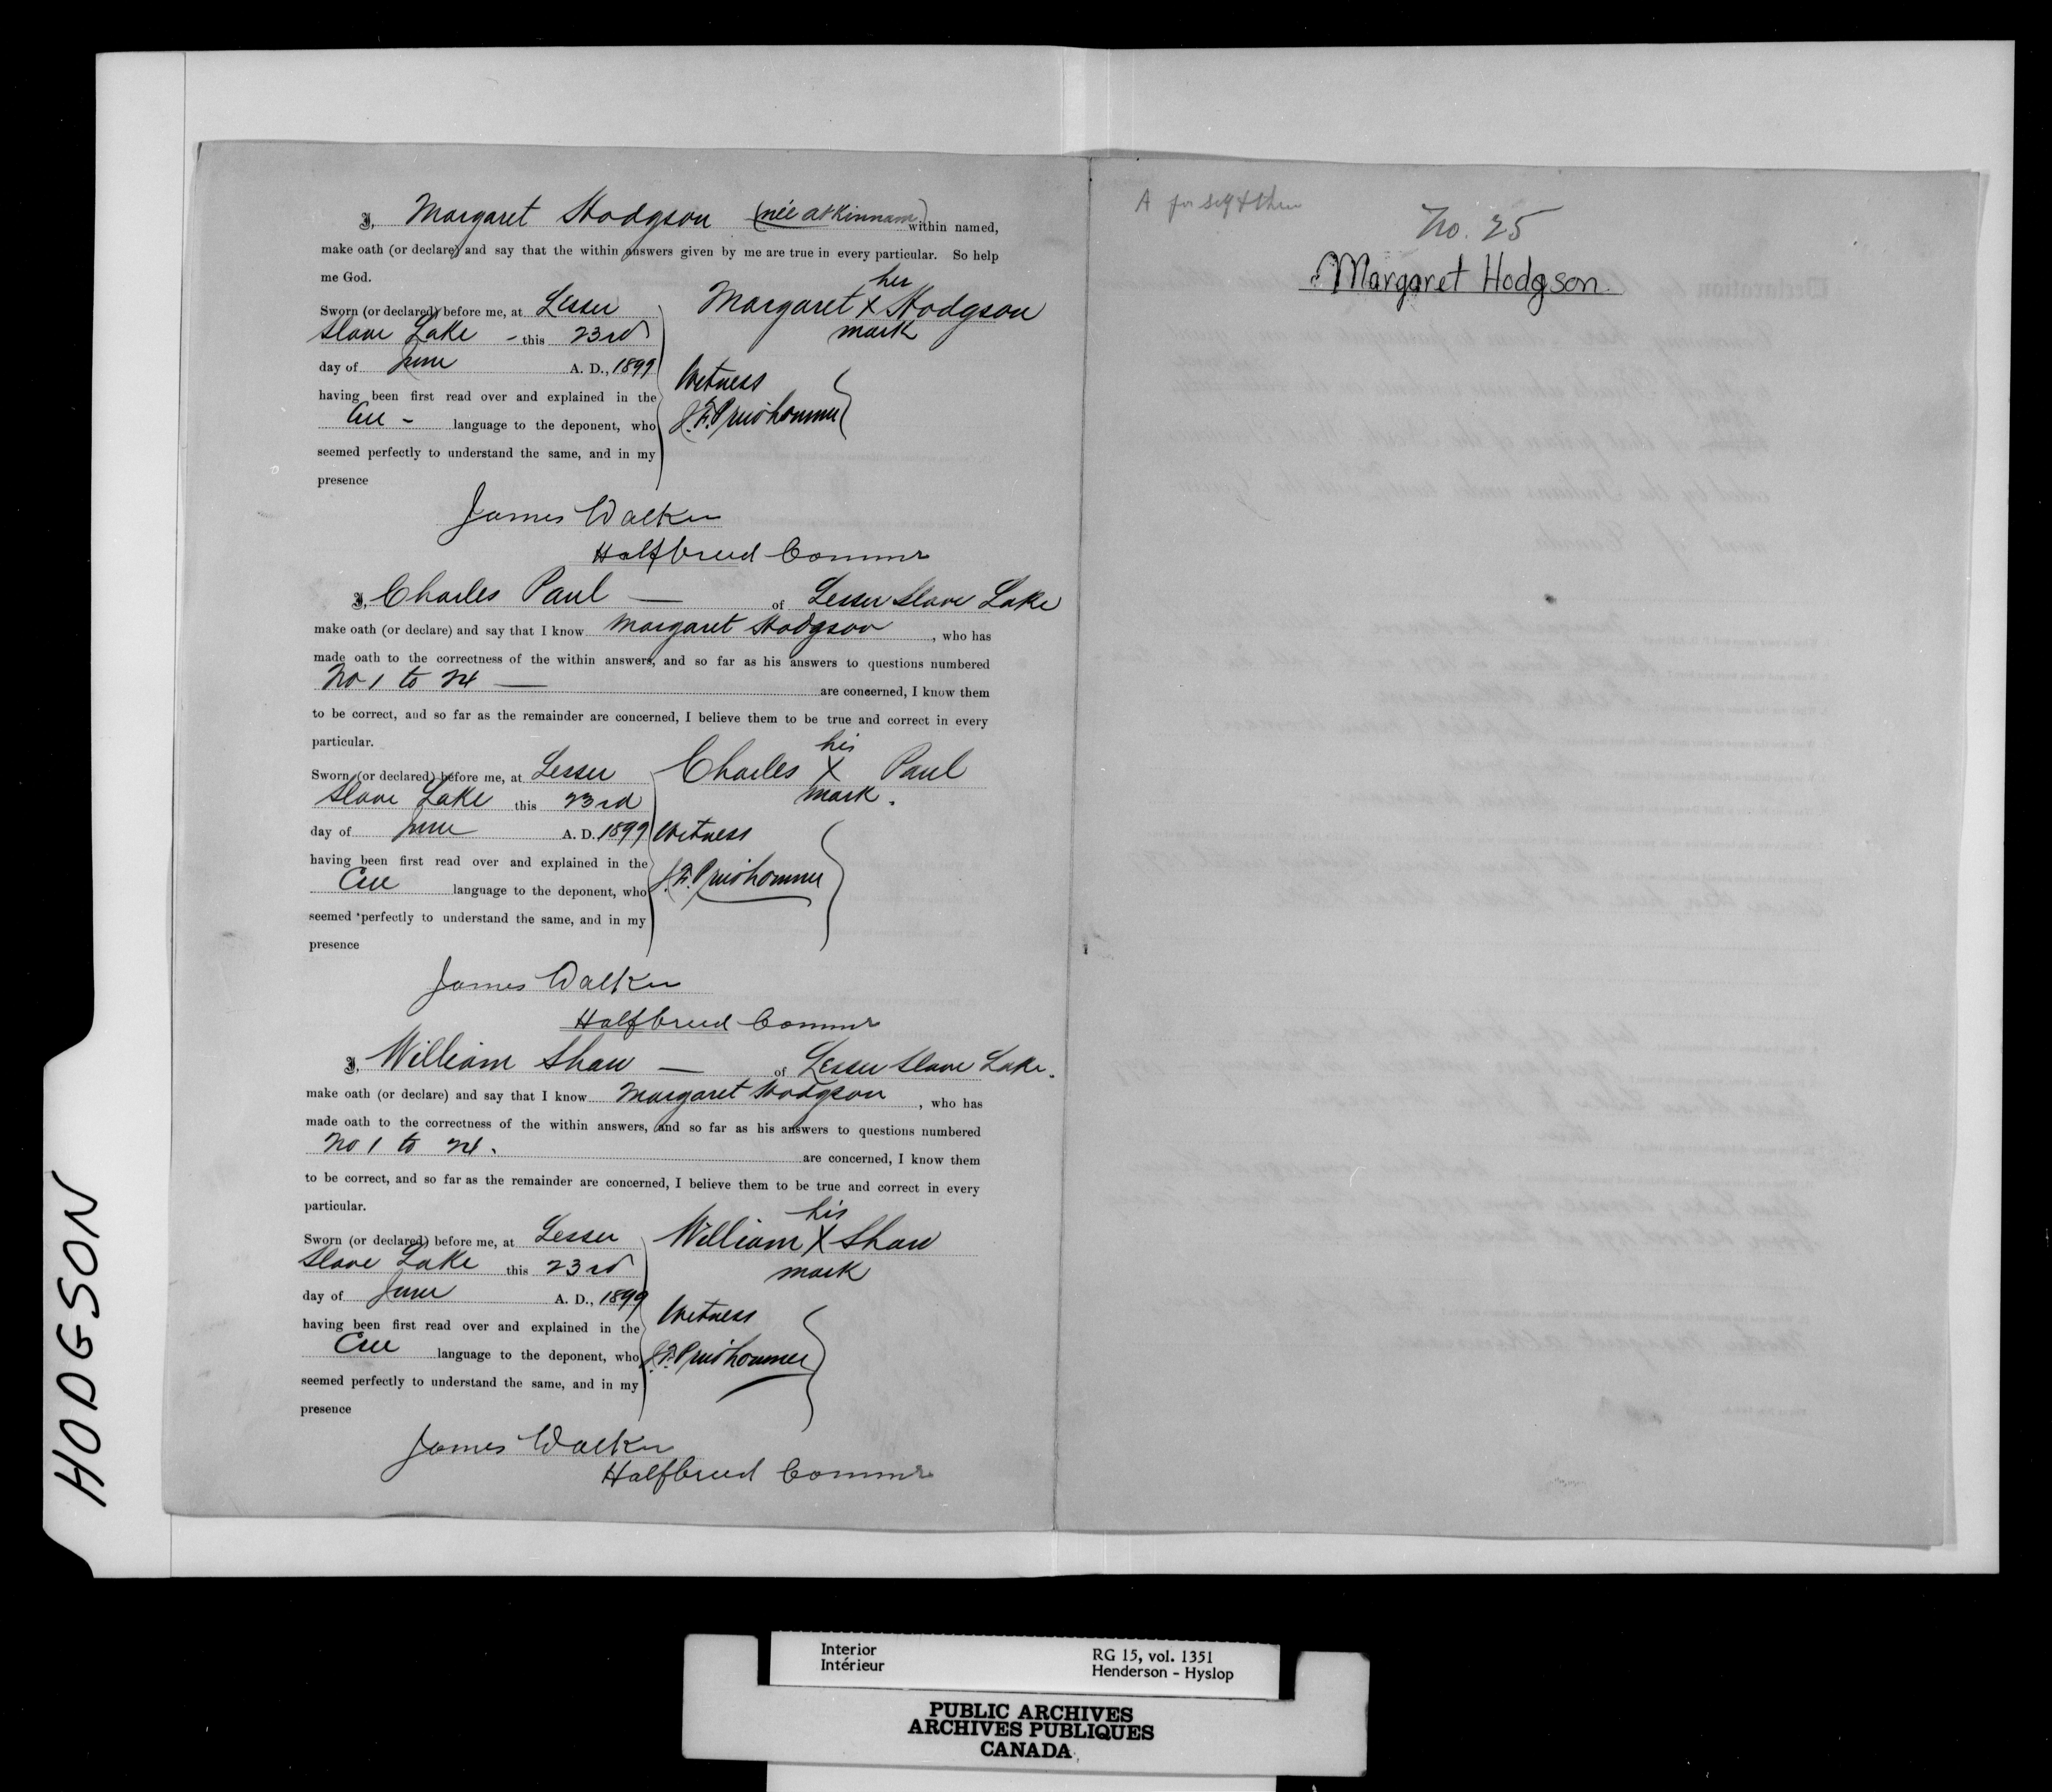 I, Margaret Hodgson (née Atkinnam) within named,
make oath (or declare) and say that the within answers given by me are true in every particular. So help
me God.
Sworn (or declared) before me, at Lesser
Slave Lake - this 23rd
day of June A. D., 1899
having been first read over and explained in the
Cree - language to the deponent, who
seemed perfectly to understand the same, and in my
presence
her
Margaret X Hodgson
mark
Witness
J. F. Prudhomme
James Walker
Halfbreed Commr
I, Charles Paul — of Lesser Slave Lake
make oath (or declare) and say that I know Margaret Hodgson, who has
made oath to the correctness of the within answers, and so far as his answers to questions numbered
No 1 to 24 — are concerned, I know them
to be correct, and so far as the remainder are concerned, I believe them to be true and correct in every
particular.
Sworn (or declared) before me, at Lesser
Slave Lake this 23rd
day of June A. D. 1899
having been first read over and explained in the
Cree language to the deponent, who
seemed perfectly to understand the same, and in my
presence
his
Charles X Paul
mark.
Witness
J. F. Prudhomme
James Walker
Halfbreed Commr
I, William Shaw — of Lesser Slave Lake.
make oath (or declare) and say that I know Margaret Hodgson, who has
made oath to the correctness of the within answers, and so far as his answers to questions numbered
No 1 to 24. are concerned, I know them
to be correct, and so far as the remainder are concerned, I believe them to be true and correct in every
particular.
Sworn (or declared) before me, at Lesser
Slave Lake this 23rd
day of June A. D., 1899
having been first read over and explained in the
Cree language to the deponent, who
seemed perfectly to understand the same, and in my
presence
his
William X Shaw
mark
Witness
J. F. Prudhomme
James Walker
Halfbreed Commr
A for self & chn
No. 25
Margaret Hodgson.
HODGSON
Interior
Intérieur
RG 15, vol. 1351
Henderson - Hyslop
PUBLIC ARCHIVES
ARCHIVES PUBLIQUES
CANADA